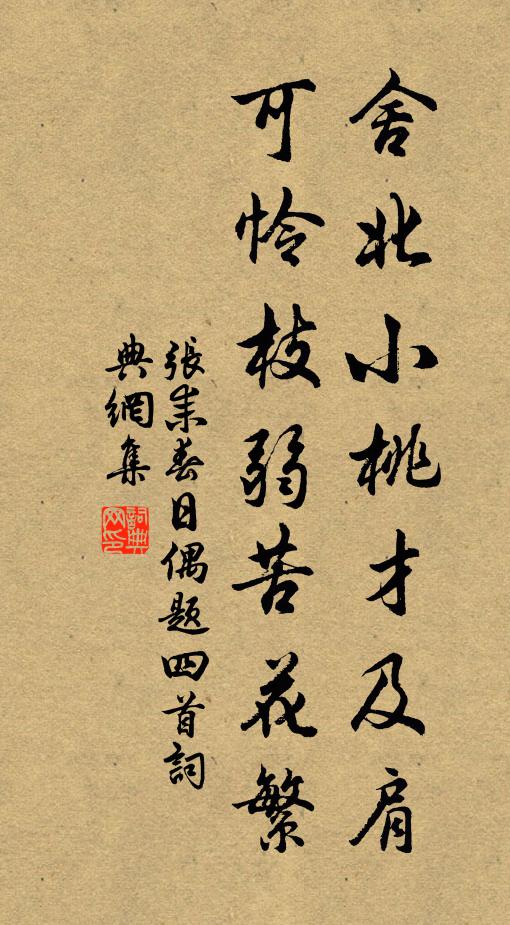 舍北小桃才及肩
可憐枝弱苦花繁
張耒春日偶題四首詞
典網集
詞典網印